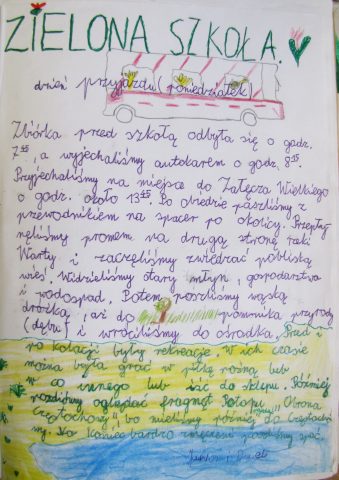 ZIELONA SZKOŁA.
dzień przyjazdu (poniedziałek)
Zbiórka przed szkołą odbyła się o godz.
7⁴⁵, a wyjechaliśmy autokarem o godz. 8¹⁵.
Przyjechaliśmy na miejsce do Załęcza Wielkiego
o godz. około 13⁴⁵. Po obiedzie poszliśmy z
przewodnikiem na spacer po okolicy. Przepły-
nęliśmy promem na drugą stronę rzeki
Warty i zaczęliśmy zwiedzać pobliską
wieś. Widzieliśmy stary młyn, gospodarstwa
i wodospad. Potem poszliśmy wąską
dróżką, aż do pomnika przyrody
(dębu) i wróciliśmy do ośrodka. Przed i
po kolacji były rekreacje, w ich czasie
można było grać w piłkę nożną lub
w co innego lub iść do sklepu. Później
oglądać fragment Potopu „Obrona
Częstochowy", bo mieliśmy później do Częstocho-
wy. Na koniec bardzo zmęczeni poszliśmy spać.